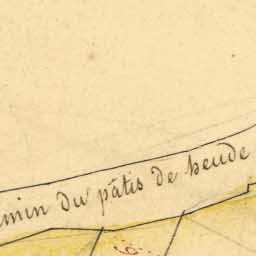 emin du pâtis de heude